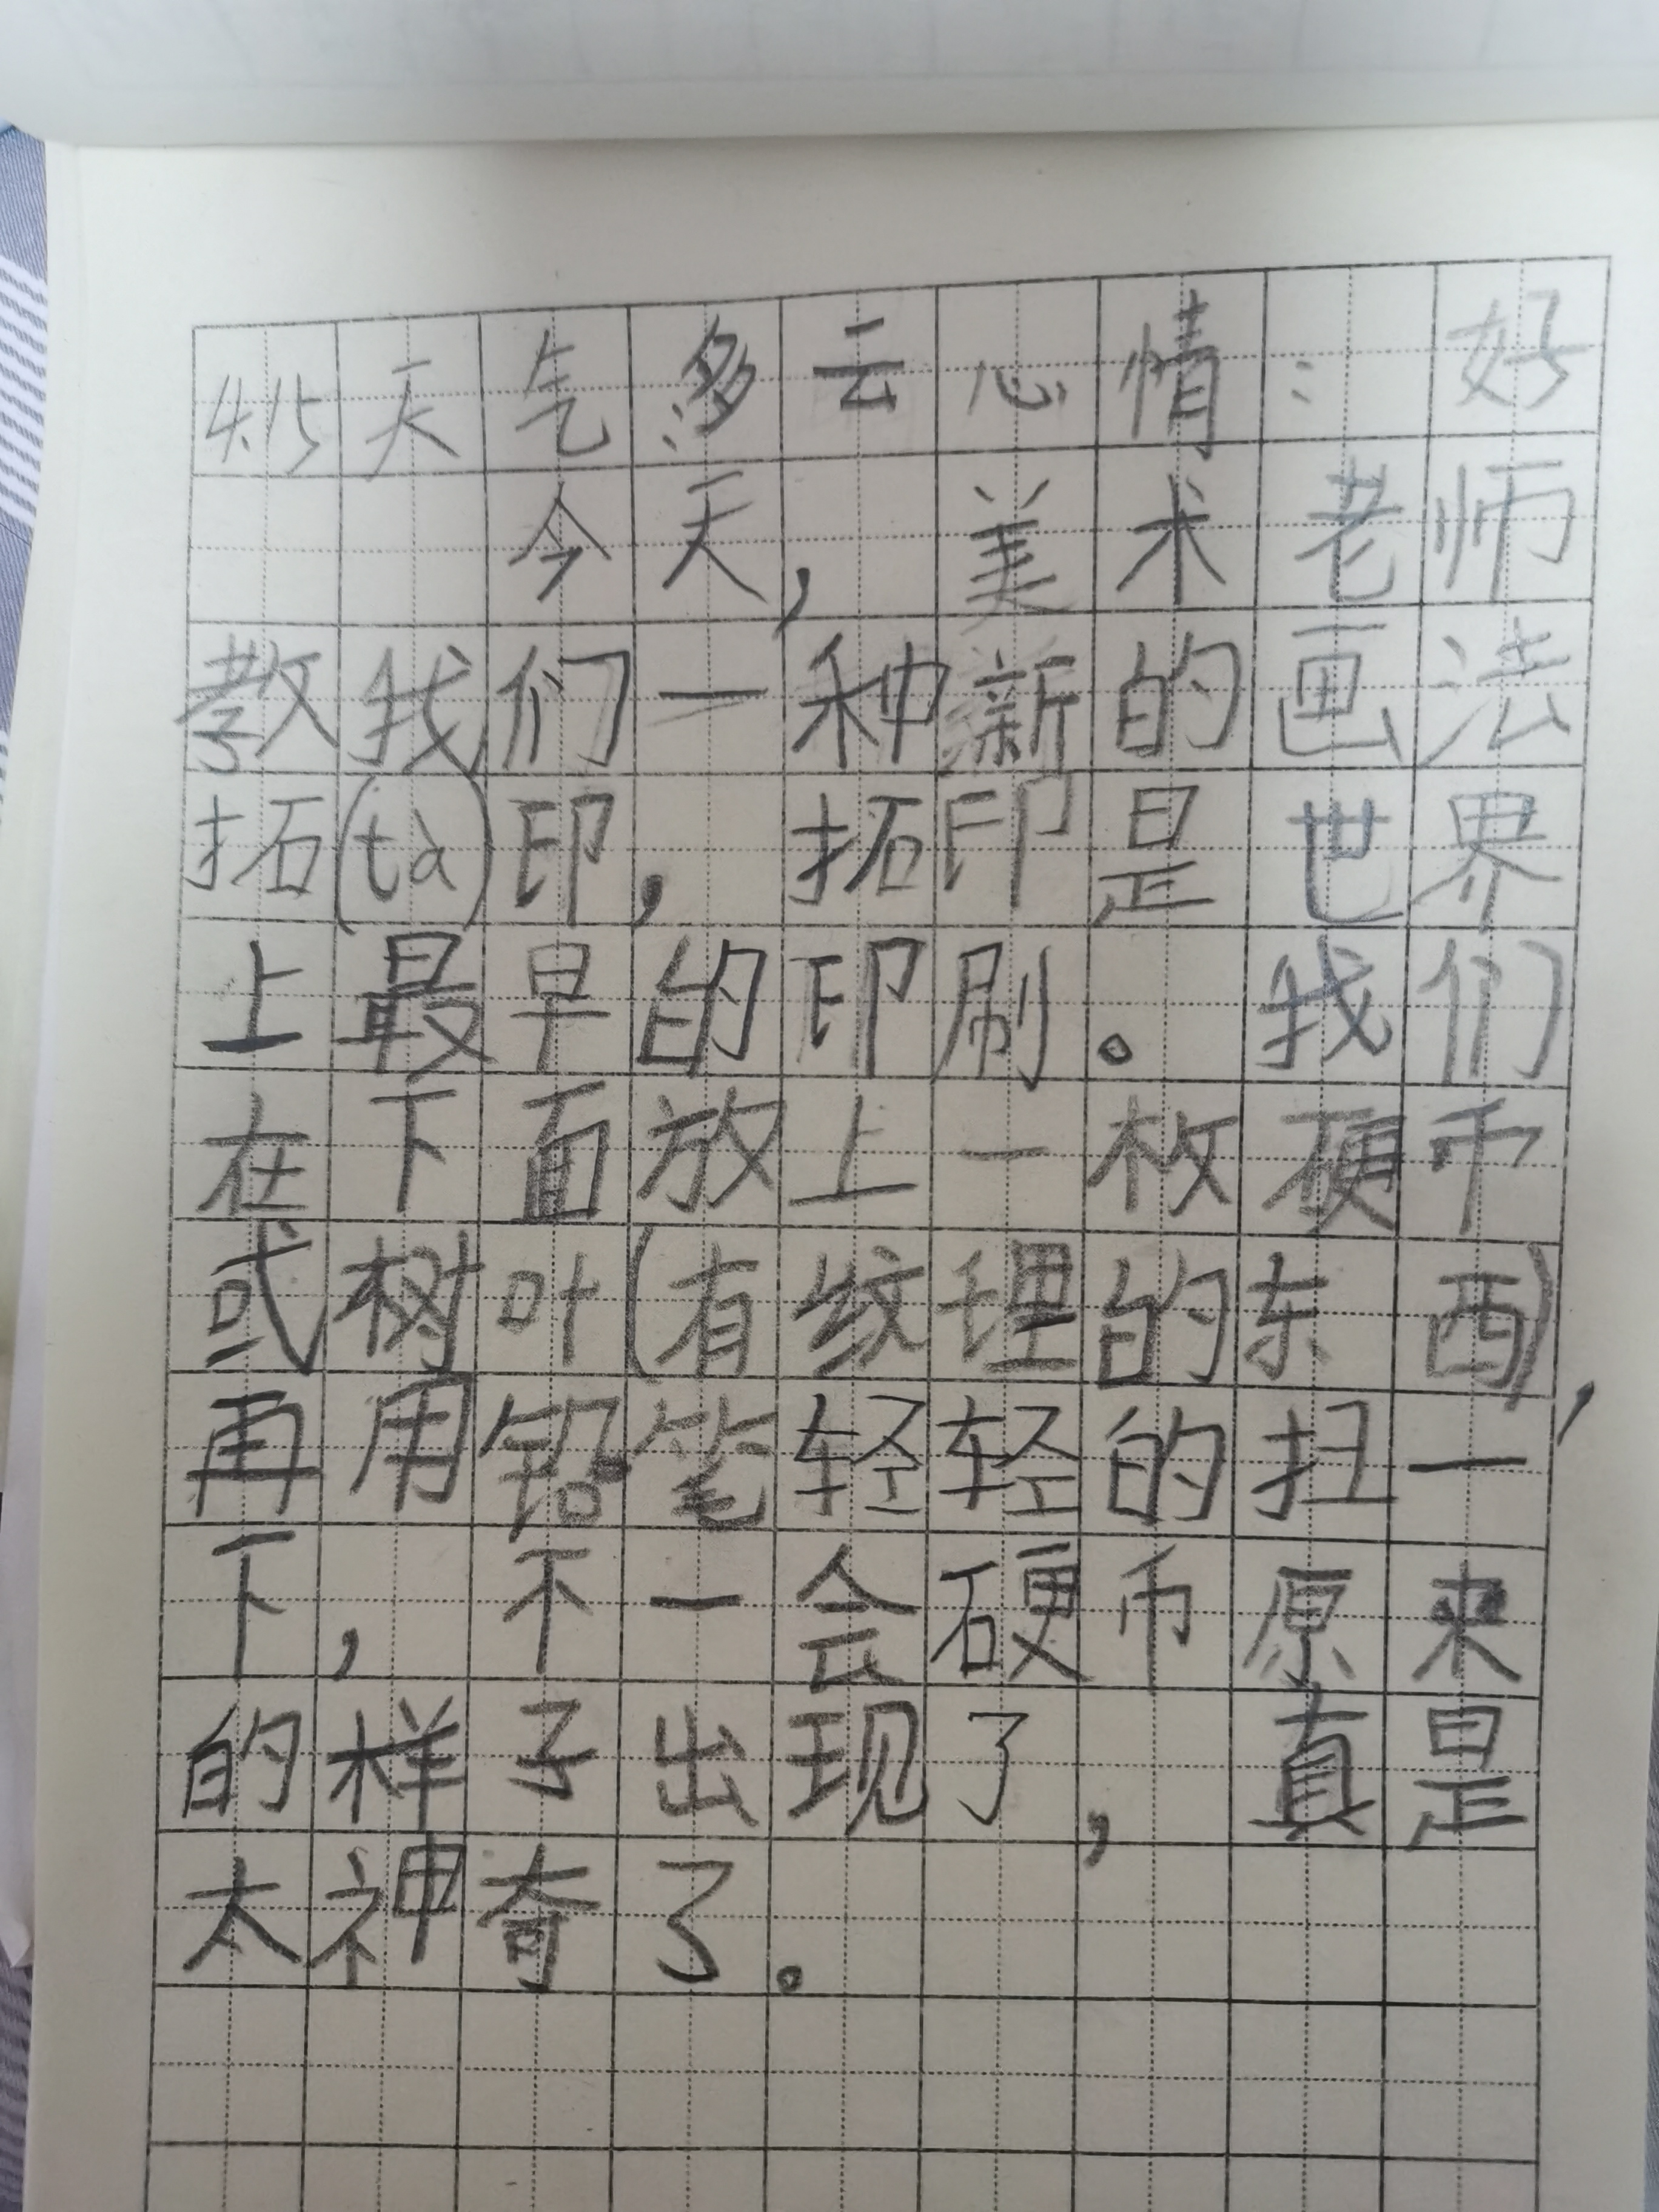 4.15天气:多云心情:好
今天,美术老师
教我们一种新的画法
拓(tà)印,拓印是世界
上最早的印刷。我们
在下面放上一枚硬币
或树叶(有纹理的东西),
再用铅笔轻轻的扫一
下,不一会硬币原来
的样子出现了,真是
太神奇了。